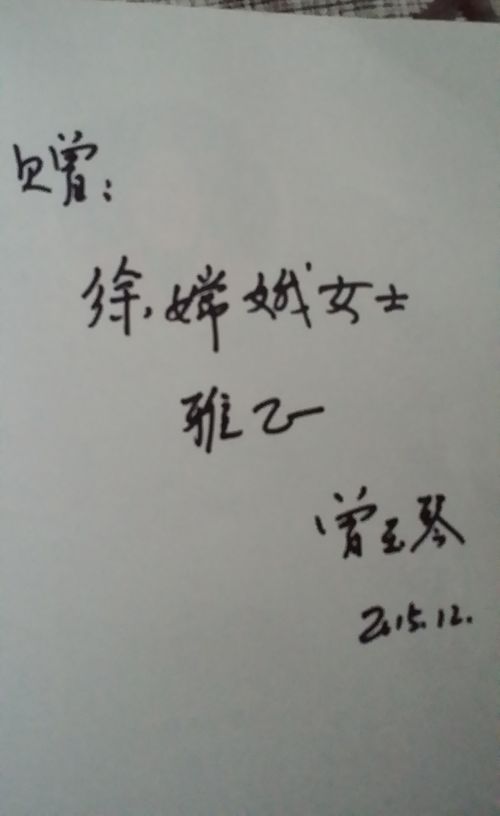 赠:
徐嫦娥女士
雅正
曾玉琴
2015.12.